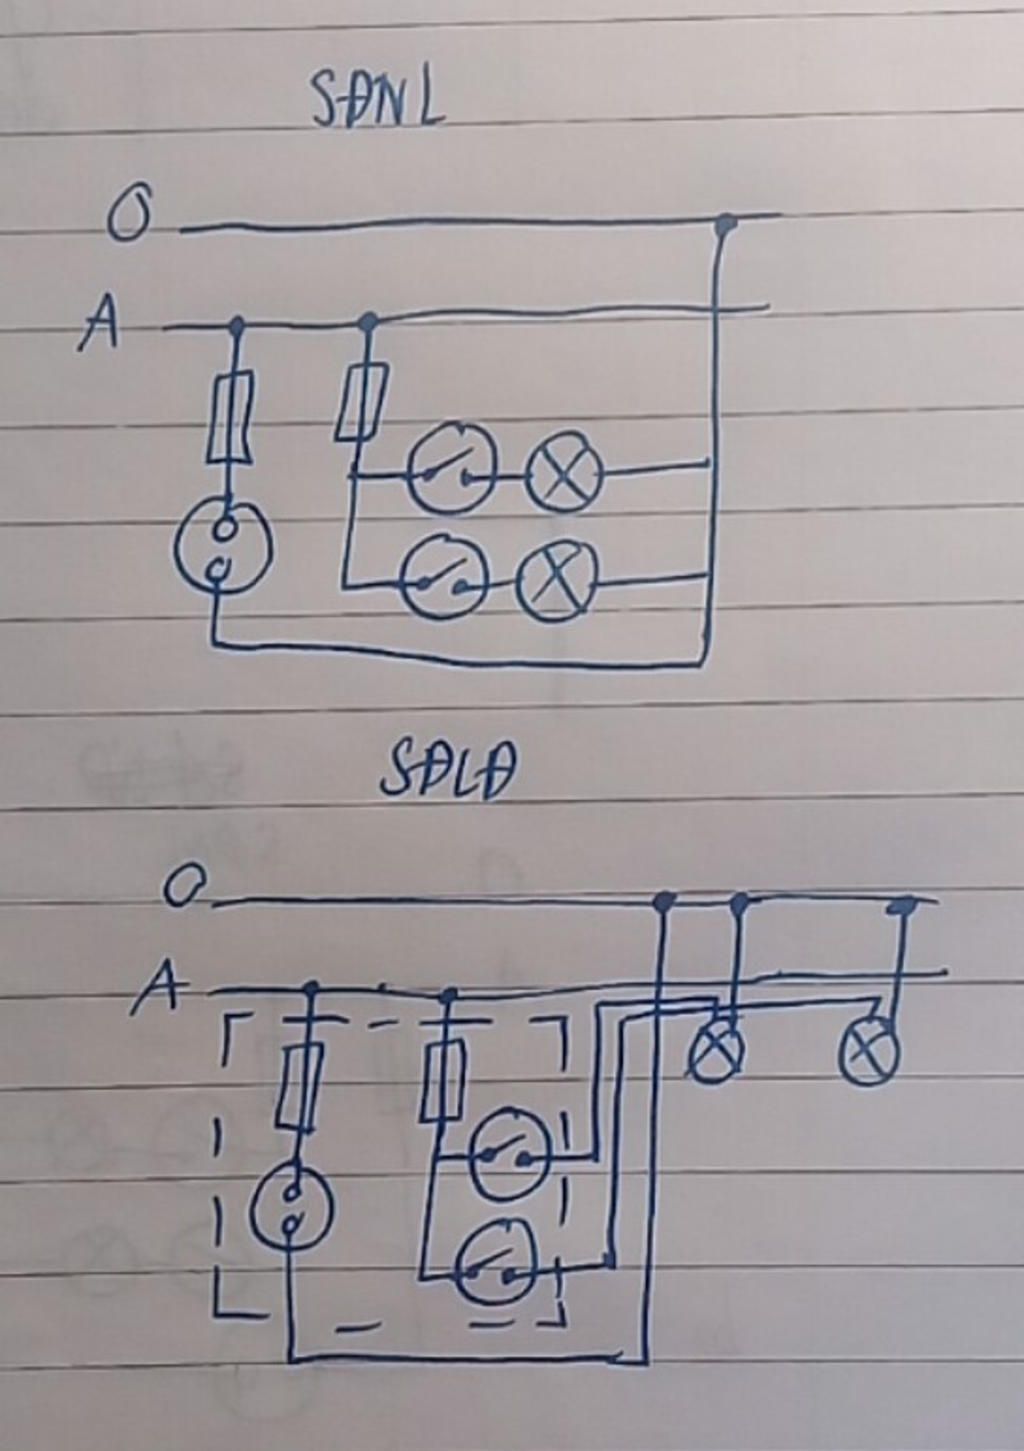 SĐNL
O
A
SĐLĐ
O
A